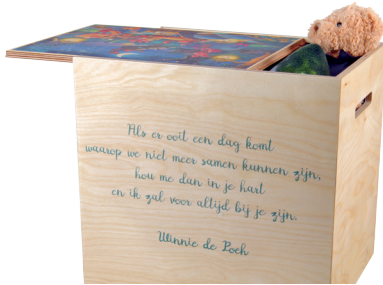 Als er ooit een dag komt
waarop we niet meer samen kunnen zijn,
hou me dan in je hart
en ik zal voor altijd bij je zijn.
Winnie de Poeh